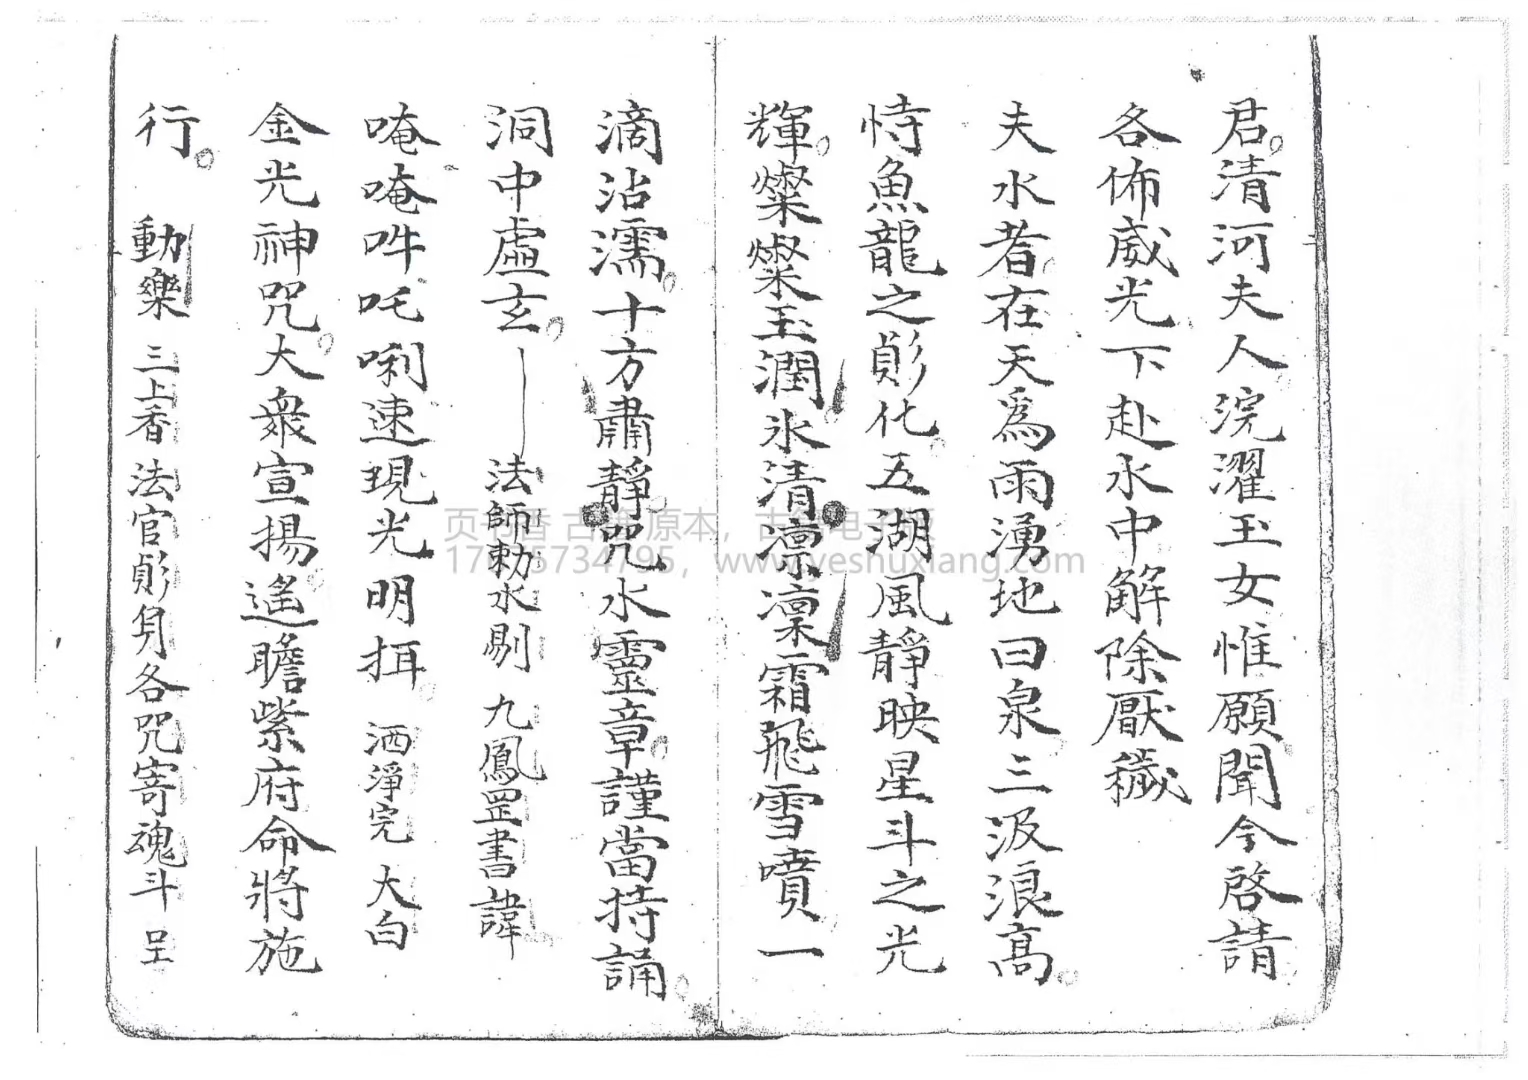 君清河夫人浣濯玉女惟願聞今啓請
各佈威光下赴水中解除厭穢
夫水者在天爲雨湧地曰泉三汲浪高
恃魚龍之化五湖風靜映星斗之光
輝燦燦玉潤氷清凛凛霜飛雪噴一
滴沾濡十方肅靜咒水靈章謹當持誦
洞中虛玄 法師勅水剔 九鳳罡書諱
唵唵吽吒唎速現光明揖 洒淨完 大白
金光神咒大衆宣揚遙瞻紫府命將施
行 動樂 三上香 法官各咒寄魂斗 呈
页书香 古籍原本，古籍电子版
www.yeshuxiang.com